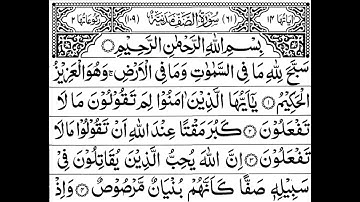 اٰیَاتُهَا ۱۴ (۶۱) سُوْرَةُ الصَّفِّ مَدَنِیَّةٌ (۱۰۹) رُكُوْعَاتُهَا ۲
بِسْمِ اللّٰهِ الرَّحْمٰنِ الرَّحِیْمِ
سَبَّحَ لِلّٰهِ مَا فِی السَّمٰوٰتِ وَمَا فِی الْاَرْضِ ۚ وَهُوَ الْعَزِیْزُ
الْحَكِیْمُ ۝۱ یٰۤاَیُّهَا الَّذِیْنَ اٰمَنُوْا لِمَ تَقُوْلُوْنَ مَا لَا
تَفْعَلُوْنَ ۝۲ كَبُرَ مَقْتًا عِنْدَ اللّٰهِ اَنْ تَقُوْلُوْا مَا لَا
تَفْعَلُوْنَ ۝۳ اِنَّ اللّٰهَ یُحِبُّ الَّذِیْنَ یُقَاتِلُوْنَ فِیْ
سَبِیْلِهٖ صَفًّا كَاَنَّهُمْ بُنْیَانٌ مَّرْصُوْصٌ ۝۴ وَاِذْ